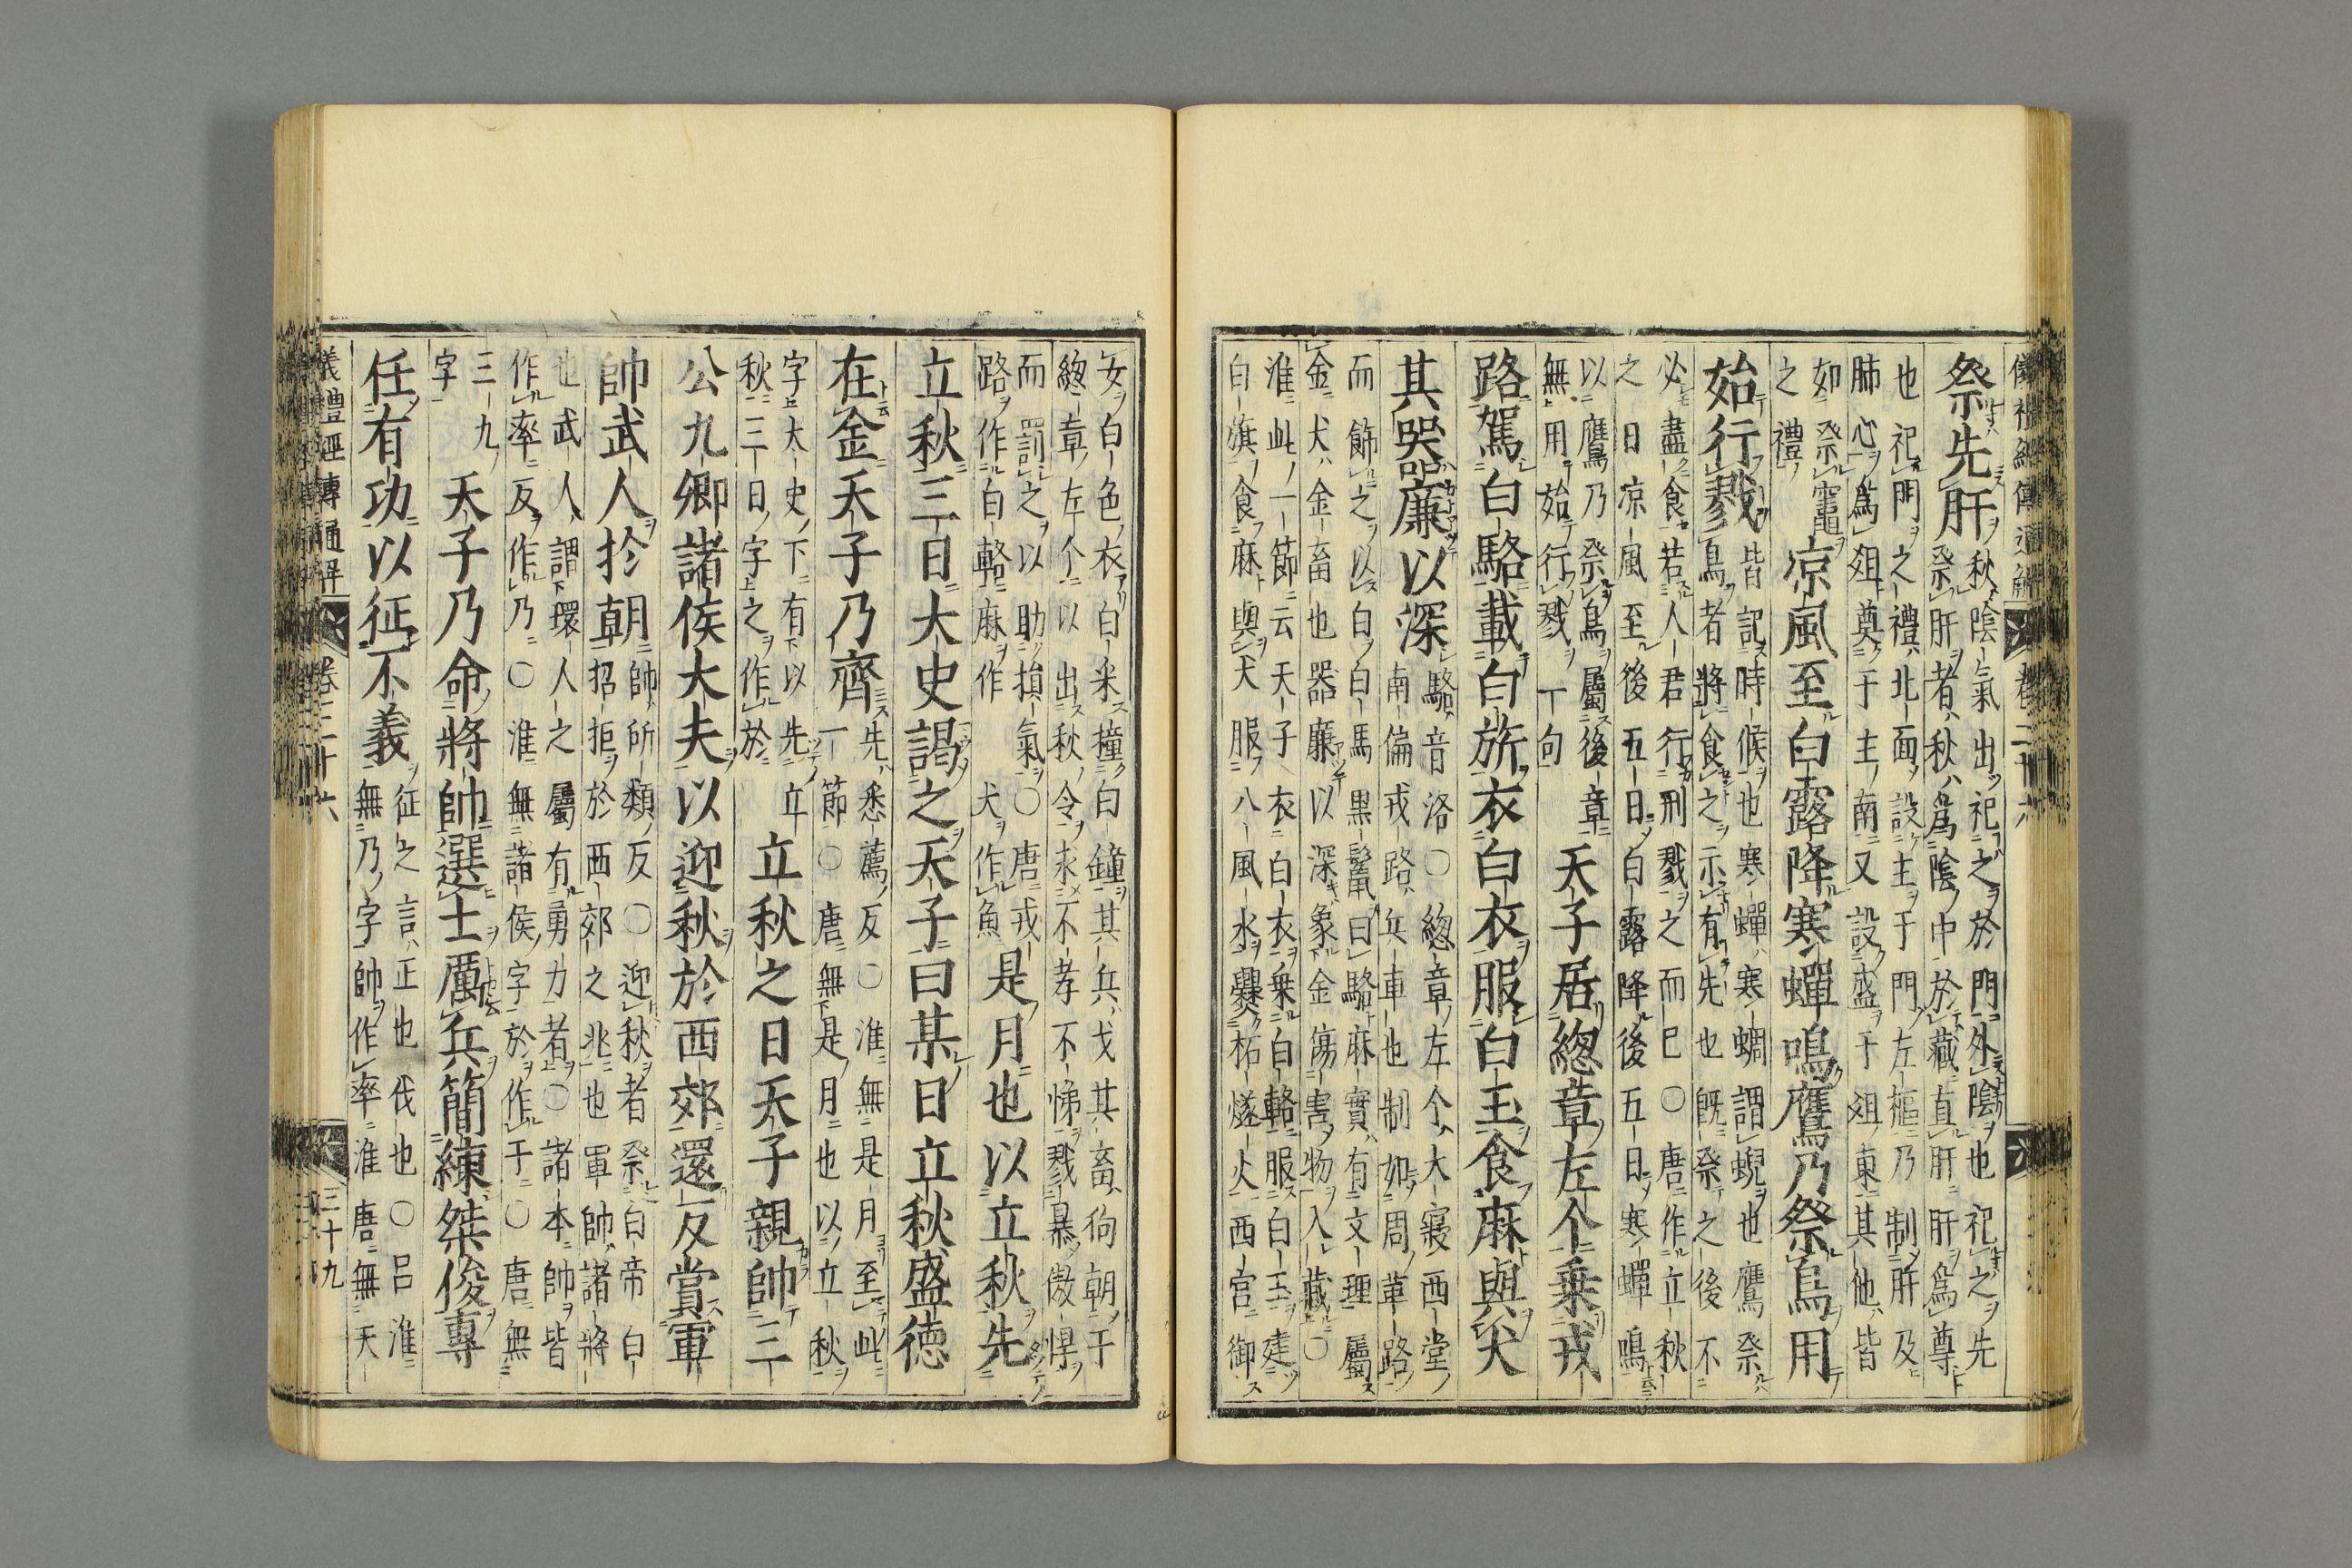 儀禮經傳通解 卷二十六
祭先肝秋陰氣出祀之於門外陰也祀之先
祭肝者秋爲陰中於藏直肝肝爲尊
也祀門之禮北面設主于門左樞乃制肝及
肺心爲俎奠于主南又設盛于俎東其他皆
如祭竈
之禮
凉風至白露降寒蟬鳴鷹乃祭鳥用
始行戮皆記時候也寒蟬寒蜩謂蜺也鷹祭
鳥者將食之示有先也旣祭之後不
必盡食若人君行刑戮之而已○唐作立秋
之日凉風至後五日白露降後五日寒蟬鳴
以鷹乃祭鳥屬後章
無用始行戮一向
天子居緫章左个乗戎
路駕白駱載白旂衣白衣服白玉食麻與犬
其器廉以深駱音洛○緫章左个大寢西堂
南偏戎路兵車也制如周革路
而飾之以白白馬黒鬣曰駱麻實有文理屬
金犬金畜也器廉以深象金傷害物入藏○
淮此一節云天子衣白衣乗白輅服白玉建
白旗食麻與犬服八風水爨柘燧火西宮御
女白色衣白采撞白鐘其兵戈其畜狗朝于
緫章左个以出秋令求不孝不悌戮暴傲悍
而罰之以助損氣○唐戎
路作白輅麻作犬作魚
是月也以立秋先
立秋三日大史謁之天子曰某日立秋盛徳
在金天子乃齊先悉薦反○淮無是月至此
一節○唐無是月也以立秋
字大史下有以先立
秋三日字之作於
立秋之日天子親帥三
公九卿諸侯大夫以迎秋於西郊還反賞軍
帥武人於朝帥所類反○迎秋者祭白帝白
招拒於西郊之兆也軍帥諸將
也武人謂環人之屬有勇力者○諸本帥皆
作率反作乃○淮無諸侯字於作于○唐無
三九
字
天子乃命將帥選士厲兵簡練桀俊專
任有功以征不義征之言正也伐也○呂淮
無乃字帥作率淮唐無天
儀禮經傳通解 卷二十六 三十九